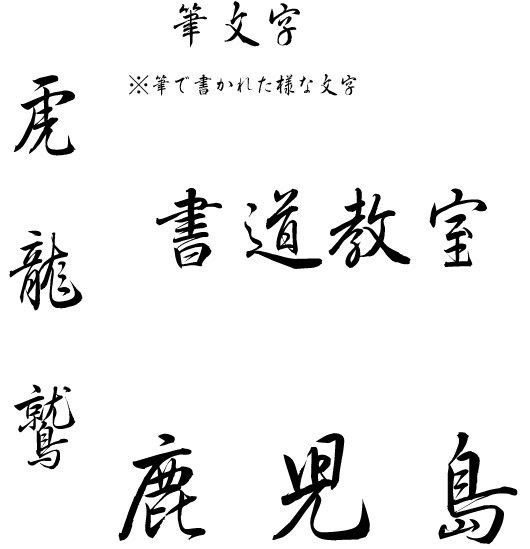 筆文字
※筆で書かれた様な文字
虎
書道教室
龍
鷲
鹿児島